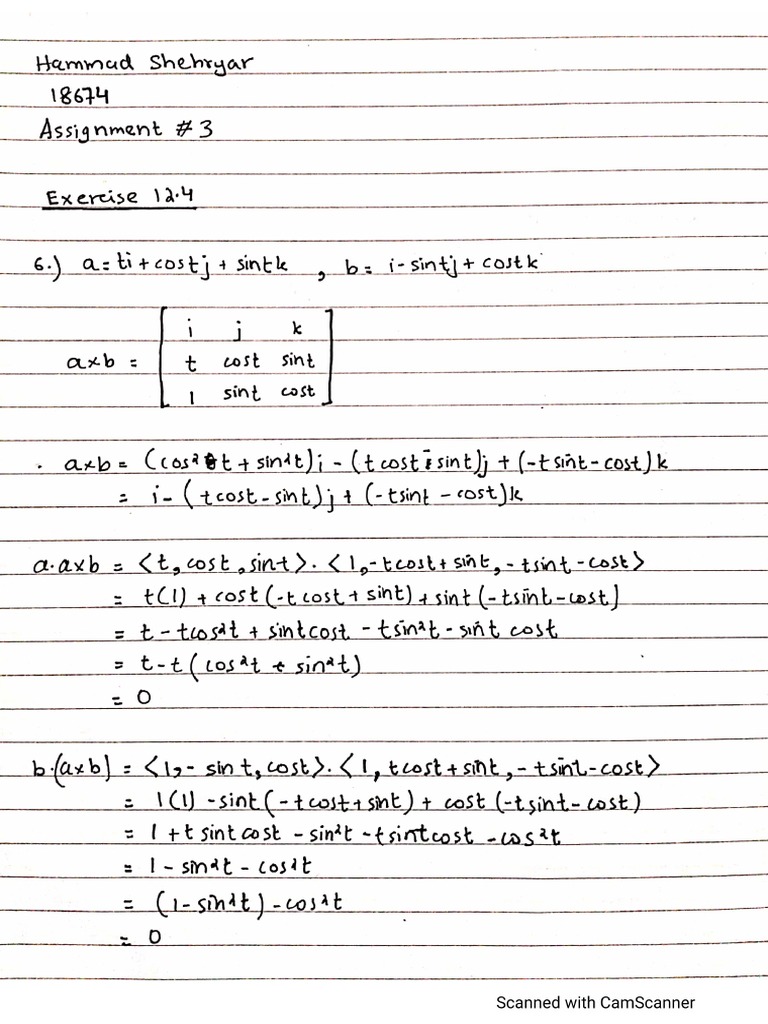 Hammad Shehryar
18674
Assignment # 3
Exercise 12.4
6.) a = ti + costj + sintk , b = i - sintj + costk
i j k
a×b = t cost sint
1 sint cost
. a×b = (cos²t + sin²t)i - (tcost - sint)j + (-tsint - cost)k
= i - (tcost - sint)j + (-tsint - cost)k
a.a×b = <t, cost, sint>. <1, -tcost + sint, -tsint - cost>
= t(1) + cost(-tcost + sint) + sint(-tsint - cost]
= t - tcos²t + sintcost - tsin²t - sint cost
= t - t(cos²t + sin²t)
= 0
b.(a×b] = <1, - sin t, cost>. <1, tcost + sint, - tsint - cost>
= 1(1) - sint(-tcost + sint) + cost(-tsint - cost)
= 1 + t sintcost - sin²t - tsintcost - cos²t
= 1 - sin²t - cos²t
= (1 - sin²t) - cos²t
= 0
Scanned with CamScanner